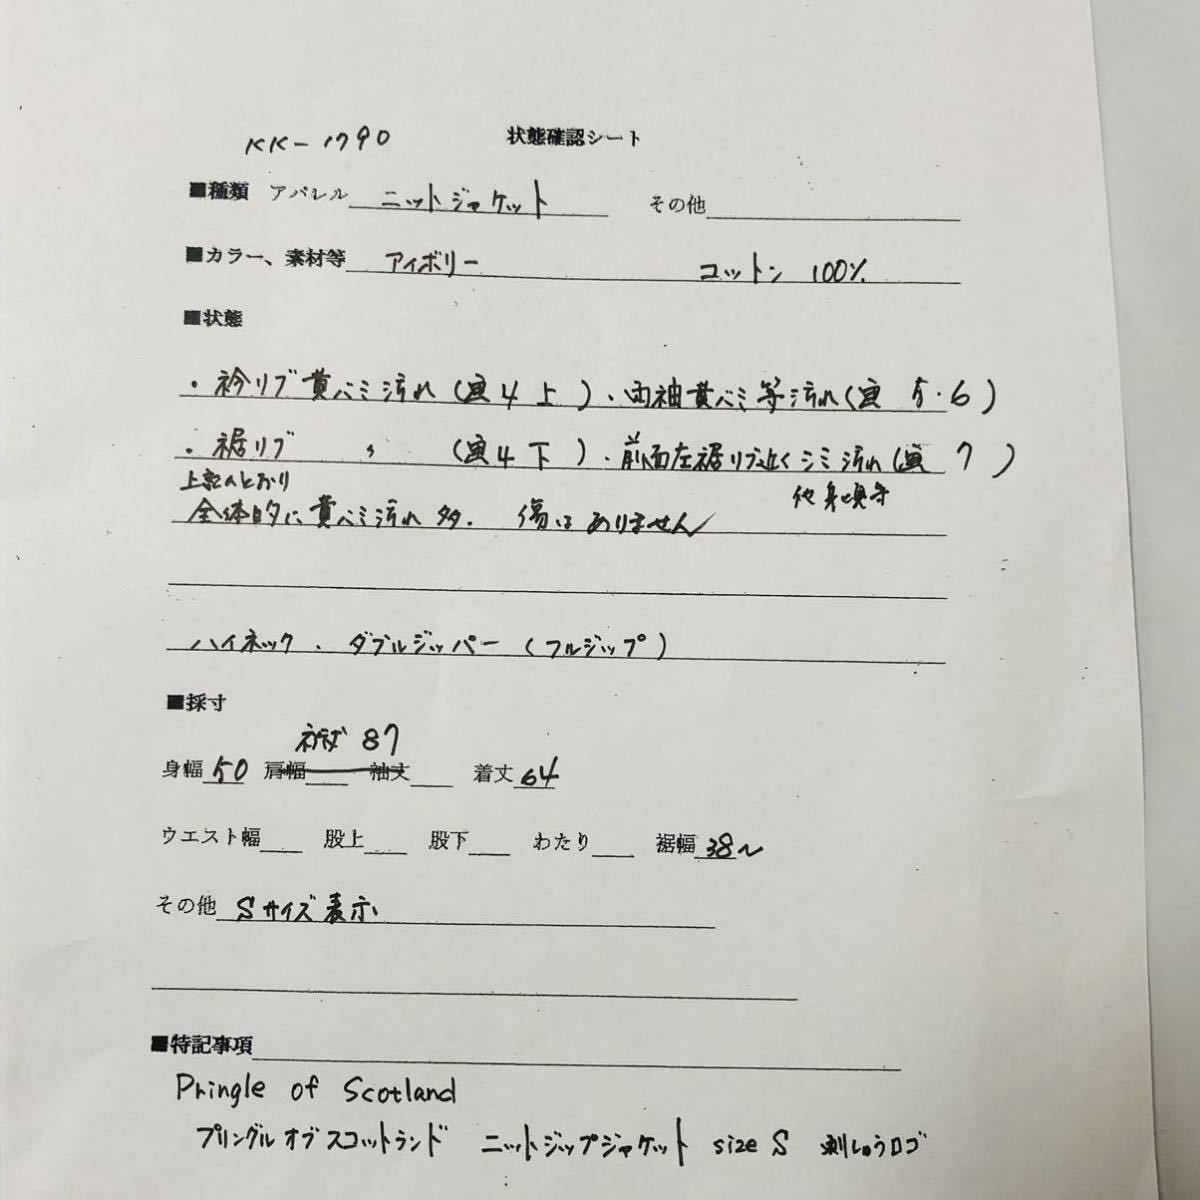 KK-1790 状態確認シート
■種類 アパレル ニットジャケット その他
■カラー、素材等 アイボリー コットン 100%
■状態
・衿リブ黄バミ汚れ(画4上)・両袖黄バミ等汚れ(画5・6)
・裾リブ 〃 (画4下)・前面左裾リブ近くシミ汚れ(画7)
上記のとおり 他身頃等
全体的に黄バミ汚れ多。傷はありません
ハイネック、ダブルジッパー(フルジップ)
■採寸
87
身幅50 肩幅 袖丈 着丈64
ウエスト幅 股上 股下 わたり 裾幅38〜
その他 Sサイズ表示
■特記事項
Pringle of Scotland
プリングルオブスコットランド ニットジップジャケット size S 刺しゅうロゴ